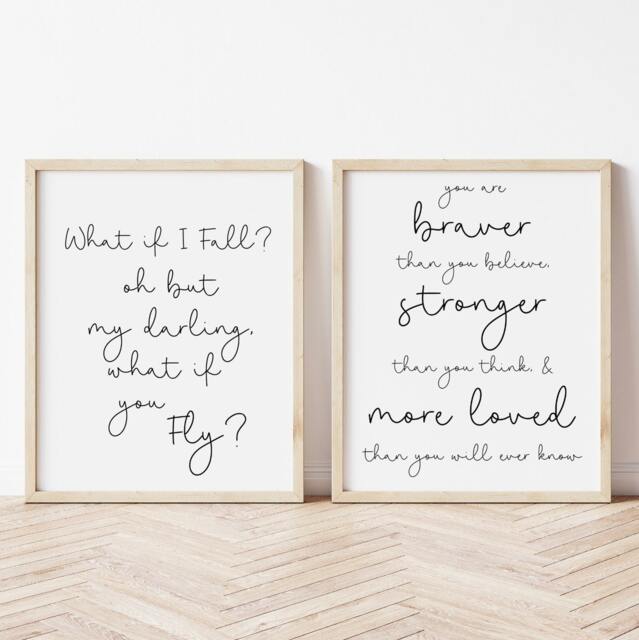 What if I Fall?
oh but
my darling,
what if
you
Fly?
you are
braver
than you believe,
stronger
than you think, &
more loved
than you will ever know